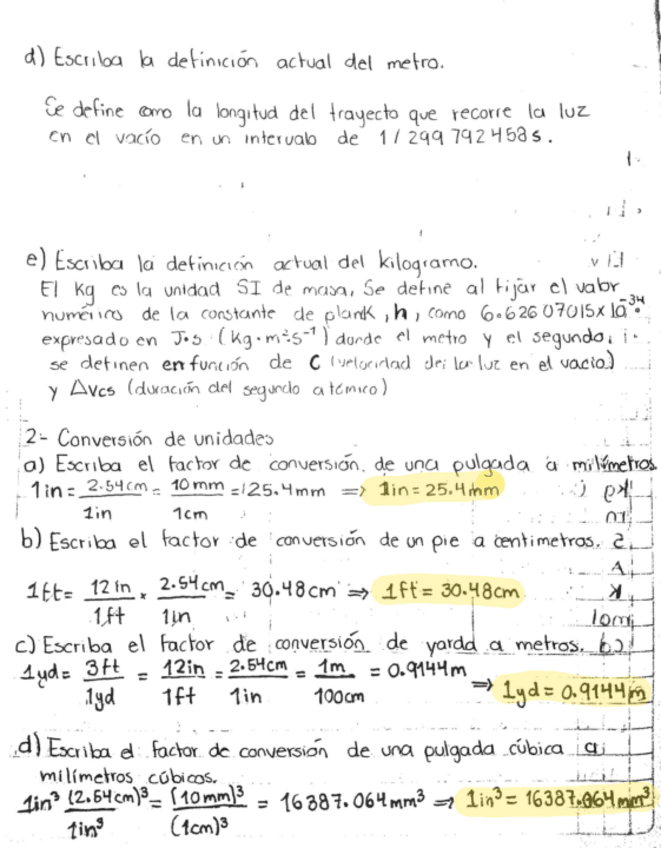 d) Escriba la definición actual del metro.
Se define como la longitud del trayecto que recorre la luz
en el vacío en un intervalo de 1 / 299 792 458 s.
e) Escriba la definición actual del kilogramo.
El Kg es la unidad SI de masa, Se define al fijar el valor
numérico de la constante de plank, h, como 6.62607015x10⁻³⁴
expresado en J·s (Kg·m²·s⁻¹) donde el metro y el segundo,
se definen en función de C (velocidad de la luz en el vacío)
y ΔVcs (duración del segundo atómico)
2- Conversión de unidades
a) Escriba el factor de conversión de una pulgada a milímetros
1in = 2.54cm/1in = 10mm/1cm = 25.4mm => 1in = 25.4mm
b) Escriba el factor de conversión de un pie a centimetros.
1ft = 12in/1ft x 2.54cm/1in = 30.48cm => 1ft = 30.48cm
c) Escriba el factor de conversión de yarda a metros.
1yd = 3ft/1yd = 12in/1ft = 2.54cm/1in = 1m/100cm = 0.9144m => 1yd = 0.9144m
d) Escriba el factor de conversión de una pulgada cúbica a
milímetros cúbicos.
1in³ (2.54cm)³/1in³ = (10mm)³/(1cm)³ = 16387.064mm³ => 1in³ = 16387.064mm³